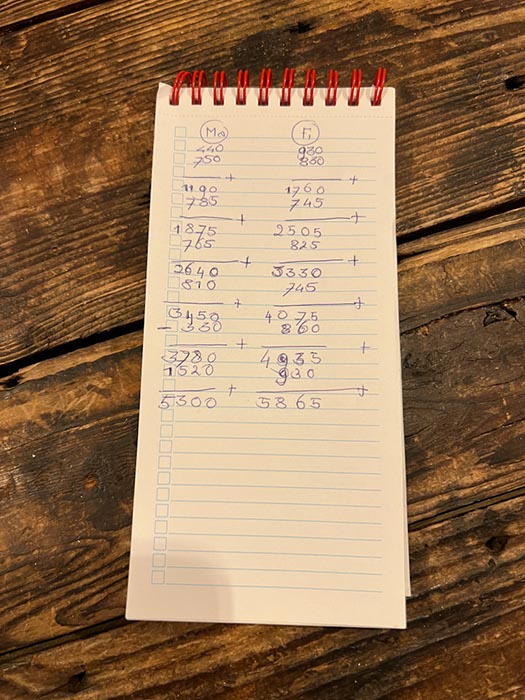 Ma Fi
440 930
750 830
+ +
1190 1760
785 745
+ +
1875 2505
765 825
+ +
2640 3330
810 745
+ +
3450 4075
- 330 860
+ +
3780 4935
1520 930
+ +
5300 5865